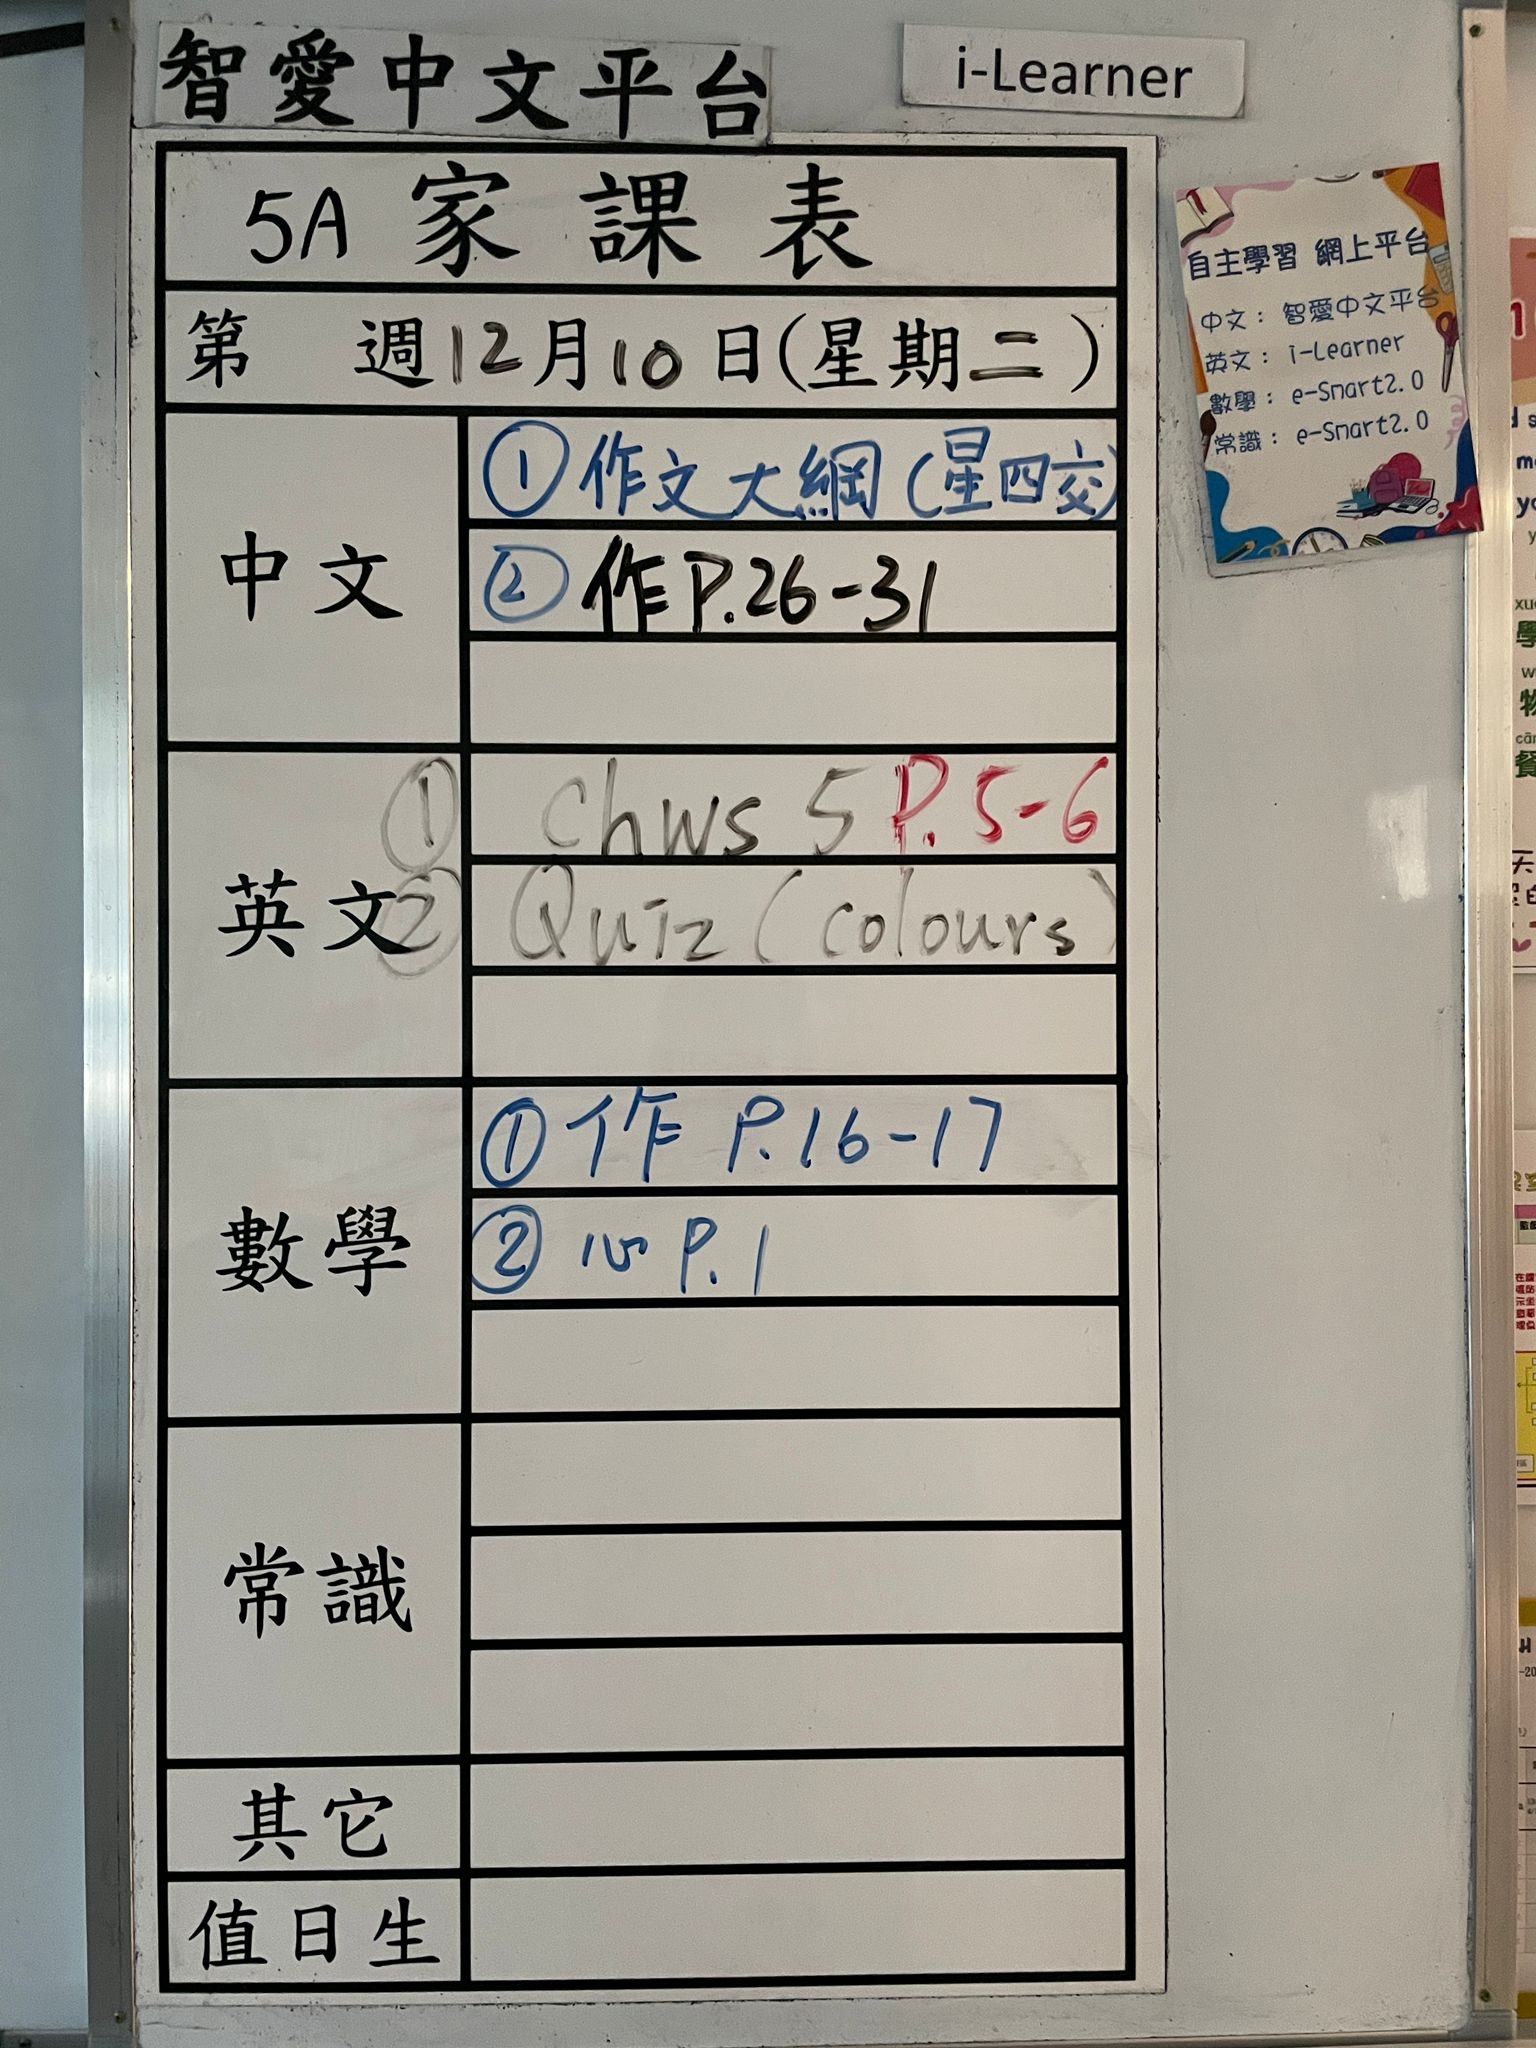 智愛中文平台
i-Learner
5A 家課表
第 週12月10日(星期二)
中文
①作文大綱(星四交)
②作P.26-31
英文
① Chws 5 P.5-6
② Quiz (colours)
數學
①作 P.16-17
②心P.1
常識
其它
值日生
自主學習 網上平台
中文: 智愛中文平台
英文: i-Learner
數學: e-Smart2.0
常識: e-Smart2.0